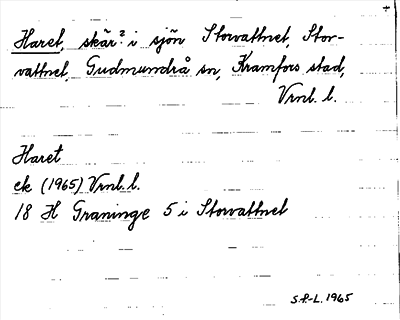 Haret, skär? i sjön Storvattnet, Stor-
vattnet, Gudmundrå sn, Kramfors stad,
Vrnl. l.
Haret
ek (1965) Vrnl. l.
18 H Graninge 5 i Storvattnet
S.P-L. 1965